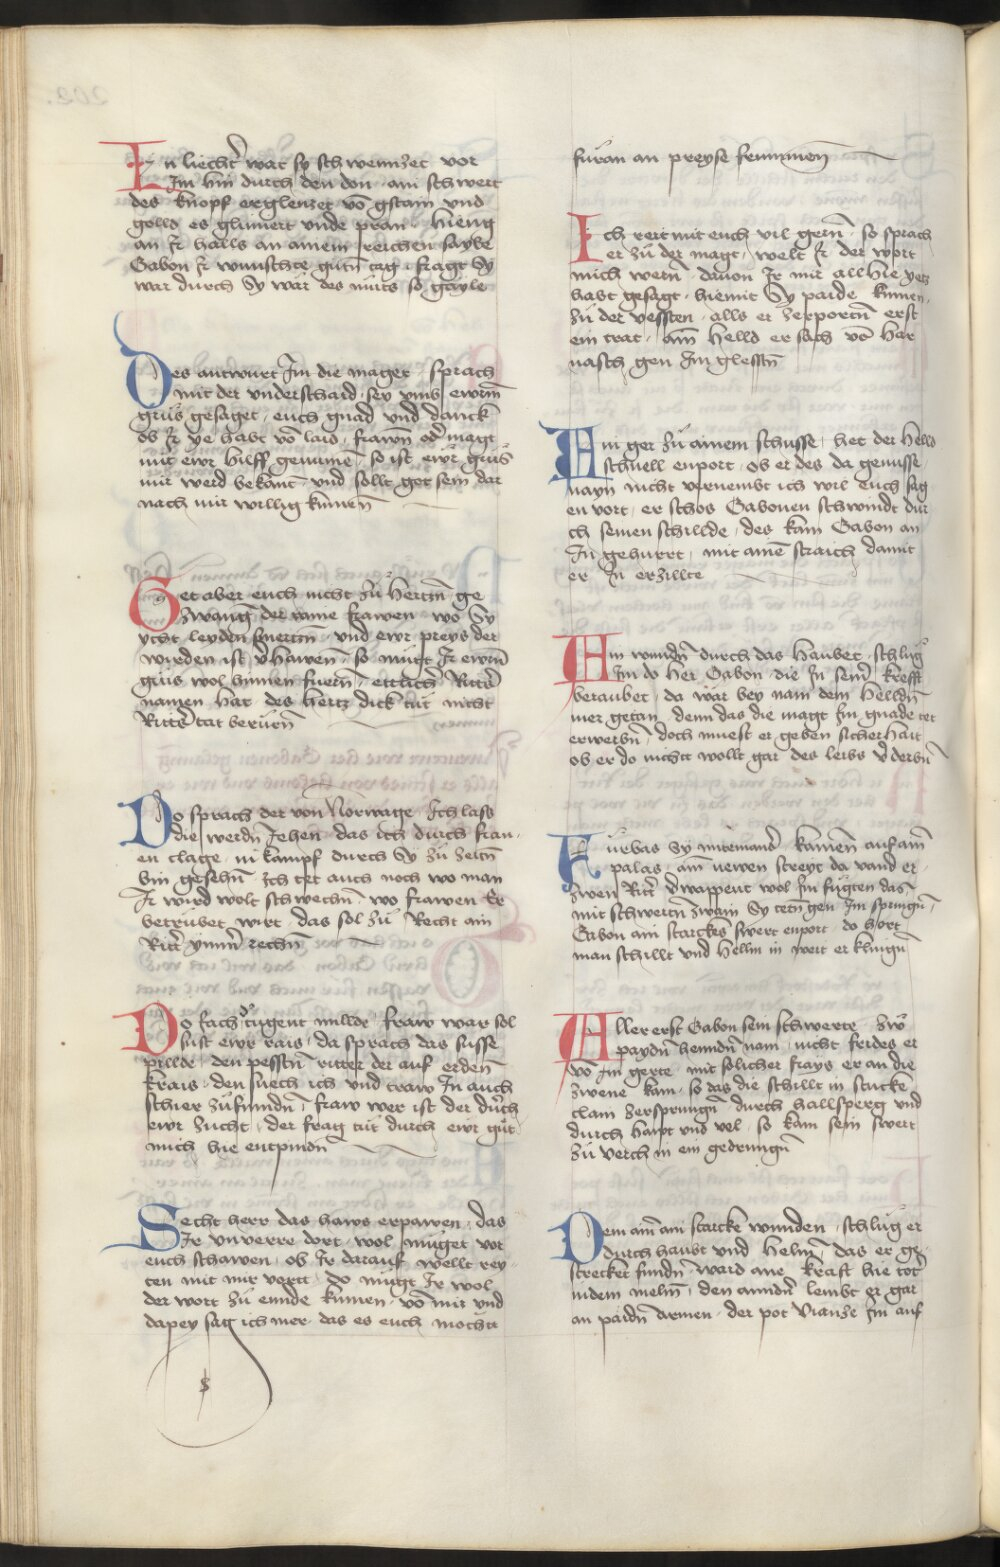 En liechtr war sy schwennzet vor
Im hin durch den don · ain schwert
des knopf erglenzet vō gstain vnd
golld es glimiert vnde pran · hieng
an Ir halls an ainem reichen sayle
Gabon Ir wunschte gutn tag · fragt Sy
war durch Sy wär des muts so gayle
Des antwurt Im die maget · sprach
mit der vnderschaid · sey vmb ewrm
grus gesaget · euch gnad vnd danck
ob Ir ye habt vō laid · frawn̄ odr magt
mit ewr hilff genumē · so ist ewr grus
mir werd bekant vnd sollt got sein dar
nach mir willig kumen̄
Get aber euch nicht zu hertzn̄ ge
zwang der raine frawen · wo Sy
ycht leyden smertzn̄ · vnd ewr preys der
wirden ist vhawen̄ · so mugt Ir ewrn̄
grus wol hinnen fuern̄ · ettlichr Rittr
namen hat des hertz dick tut nicht
Rittr tat berürn̄
Do sprach der von Norwage · Ich lass
die werdn̄ Iehen das ich durch fraw
en clage · in kampf durch Sy zu zeitn̄
bin gesehn̄ · Ich tet auch noch wo man
Ir wird wolt schwechn̄ · wo frawen Er
betrubet wirt · das sol zu Recht ain
Rittr ymmr rechn̄
Do sach dr tugent millde · fraw war sol
sust ewr rais · da sprach das susse
pillde · den pesstn̄ ritter der auf erden
krais · den suech ich vnd traw In auch
schier zufinndn̄ · fraw wer ist der durch
ewr zucht · der frag tut durch ewr gut
mich hie entpindn̄
Secht herr das haws erpawen · das
Ir vnverre dort · wol muget vor
euch schawen · ob Ir darauf wellt rey
ten mit mir vortt · do mugt Ir wol
der wort zu ennde kumen · vō mir vnd
dapey sag ich mer · das es euch mocht
furan an preyse frummen̄
Ich reit mit euch vil gern̄ · so sprach
er zu der magt · welt Ir der wort
mich wern̄ · davon Ir mir all hie yetz
habt gesagt · hiemit Sy paide kumen
zu der vessten · alls er zerportn̄ erst
ein trat · ain̄ helld er sach vō her
nasch gen Im glesstn̄
Ain ger zu ainem schusse · het der held
schnell enport · ob er des da genusse
nayn nicht vernembt ich wil euch sag
en vort · er schos Gabonen schwindt dur
ch seinen schillde · des kam Gabon an
In gehurtt · mit ainē straich damit
er In erzillte
Ain wundn̄ durch das haubet · schlug
Im do her Gabon · die In seinr krefft
beraubet · da wär bey nam dem helldn̄
mer getan · denn das die magt Im gnade tet
erwerbn̄ · doch muest er geben sicherhait
ob er do nicht wollt gar des leibs vderbn̄
Fuebas Sy mitemandr kamen̄ auf ain̄
palas · ain̄ newen streyt da vand er ·
zwen Rittr vwappent wol Im fugten das
mit schwertn̄ zwain Sy tetn̄ gen Im springn̄
Gabon ain starckes swert enport · do hort
man schillt vnd hellm in wert er klingn̄
Allererst Gabon sein schwerte · zw
paydn̄ henndn̄ nam · nicht frides er
vō Im gerte · mit solicher frays er an die
zwene kam · so das die schillt in stucke
clain zersprungn̄ · durch hallsperg vnd
durch haupt vnd vel · so kam sein swert
zu verch in ein gedrungn̄
Dem ain̄ ain starcke wunden · schlug er
durch haubt vnd helm · das er ge
strecket fundn̄ ward ane kraft hie tot
indem melm̄ · den anndrn̄ lembt er gar
an paidn̄ armen · der pot vianze Im auf